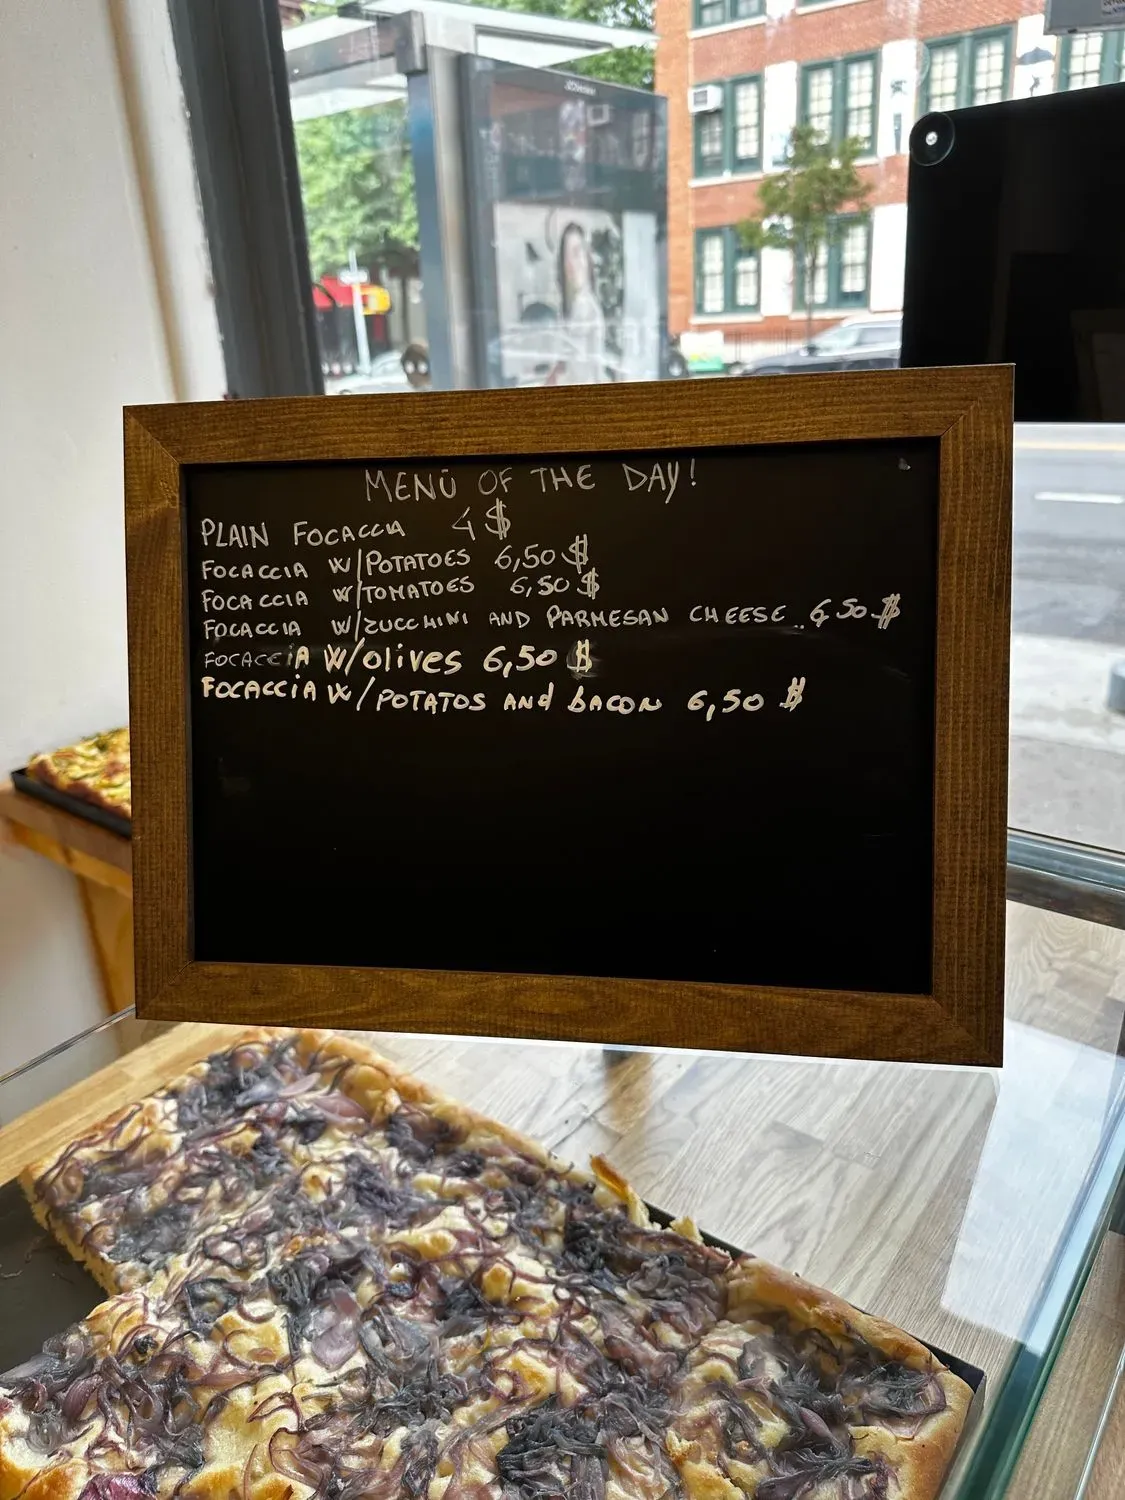 MENÙ OF THE DAY!
PLAIN FOCACCIA 4 $
FOCACCIA W/POTATOES 6,50 $
FOCACCIA W/TOMATOES 6,50 $
FOCACCIA W/ZUCCHINI AND PARMESAN CHEESE.. 6,50 $
FOCACCIA W/olives 6,50 $
FOCACCIA W/POTATOS AND bACON 6,50 $